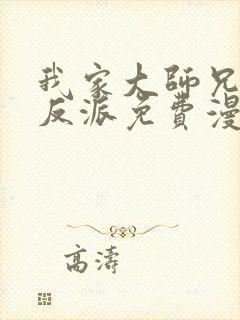 我家大師兄
反派免費漫
高濤